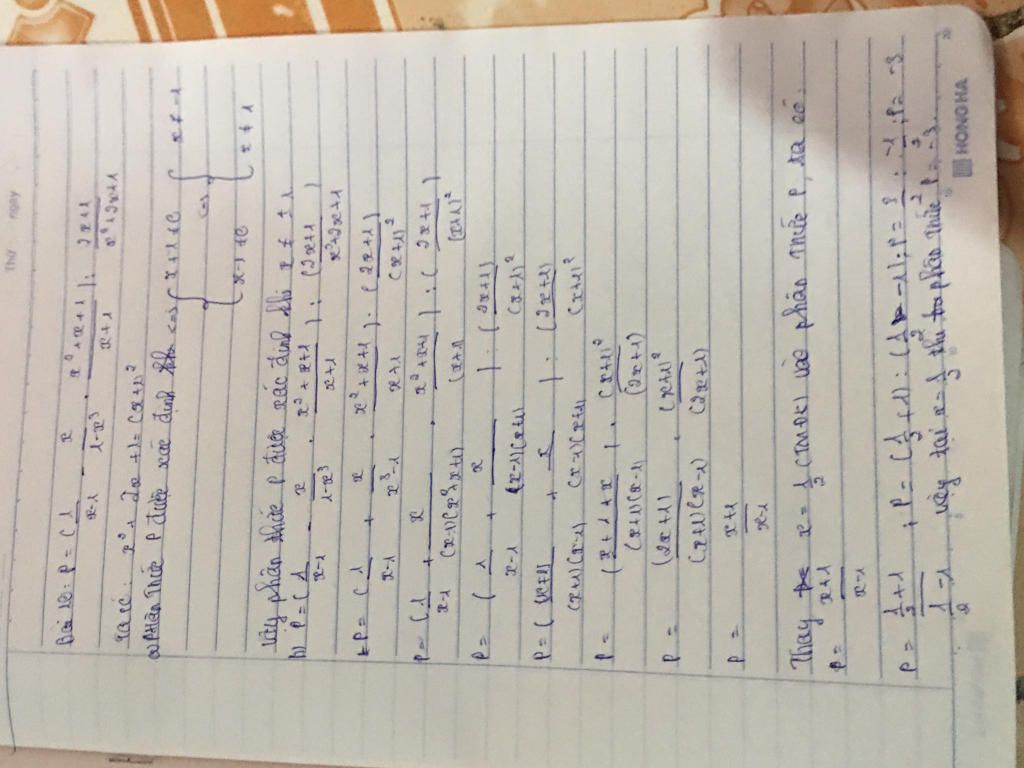 Thứ ngày
Bài 10: P = ( 1/(x-1) - x/(1-x³) . (x²+x+1)/(x+1) ) : (2x+1)/(x²+2x+1)
Ta có: x² + 2x + 1 = (x+1)²
a) Phân thức P được xác định khi <=> { x+1 ≠ 0 <=> { x ≠ -1
{ x-1 ≠ 0 { x ≠ 1
Vậy phân thức P được xác định khi x ≠ ± 1
b) P = ( 1/(x-1) - x/(1-x³) . (x²+x+1)/(x+1) ) : (2x+1)/(x²+2x+1)
P = ( 1/(x-1) + x/(x³-1) . (x²+x+1)/(x+1) ) : (2x+1)/(x+1)²
P = ( 1/(x-1) + x/((x-1)(x²+x+1)) . (x²+x+1)/(x+1) ) : (2x+1)/(x+1)²
P = ( 1/(x-1) + x/((x-1)(x+1)) ) : (2x+1)/(x+1)²
P = ( (x+1)/((x+1)(x-1)) + x/((x-1)(x+1)) ) : (2x+1)/(x+1)²
P = (x+1+x)/((x+1)(x-1)) . (x+1)²/(2x+1)
P = (2x+1)/((x+1)(x-1)) . (x+1)²/(2x+1)
P = (x+1)/(x-1)
Thay x = 1/2 (TMĐK) vào phân thức P, ta có:
P = (x+1)/(x-1)
P = (1/2+1)/(1/2-1) ; P = (1/2+1) : (1/2-1) ; P = 3/2 : -1/2 ; P = -3
Vậy tại x = 1/2 thì phân thức P = -3.
HONG HA